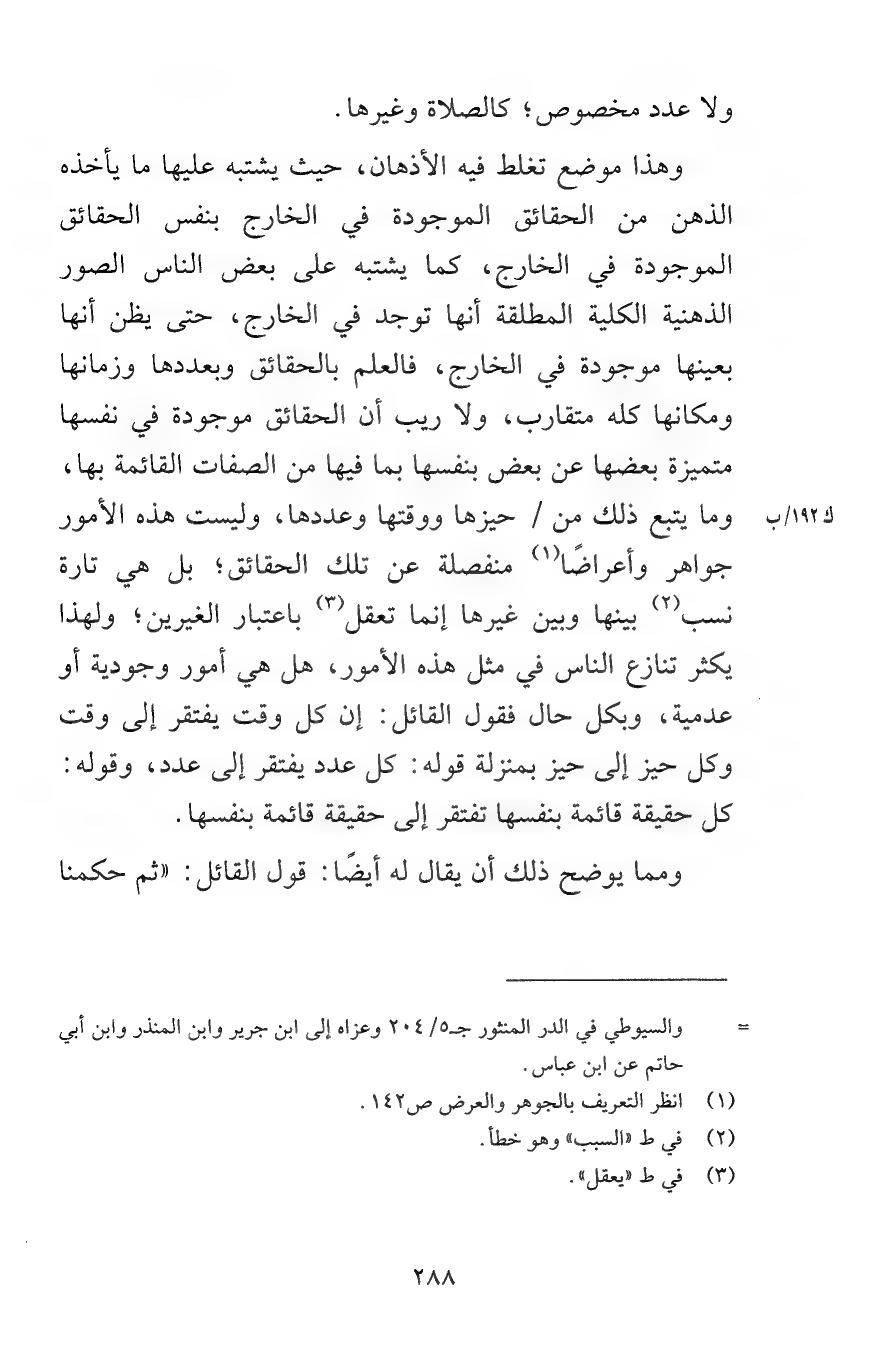 ولا عدد مخصوص؛ كالصلاة وغيرها.
وهذا موضع تغلط فيه الأذهان، حيث يشتبه عليها ما يأخذه
الذهن من الحقائق الموجودة في الخارج بنفس الحقائق
الموجودة في الخارج، كما يشتبه على بعض الناس الصور
الذهنية الكلية المطلقة أنها توجد في الخارج، حتى يظن أنها
بعينها موجودة في الخارج، فالعلم بالحقائق وبعددها وزمانها
ومكانها كله متقارب، ولا ريب أن الحقائق موجودة في نفسها
متميزة بعضها عن بعض بنفسها بما فيها من الصفات القائمة بها،
وما يتبع ذلك من / حيزها ووقتها وعددها، وليست هذه الأمور ك١٩٢/ب
جواهر وأعراضًا(١) منفصلة عن تلك الحقائق؛ بل هي تارة
نسب(٢) بينها وبين غيرها إنما تعقل(٣) باعتبار الغيرين؛ ولهذا
يكثر تنازع الناس في مثل هذه الأمور، هل هي أمور وجودية أو
عدمية، وبكل حال فقول القائل: إن كل وقت يفتقر إلى وقت
وكل حيز إلى حيز بمنزلة قوله: كل عدد يفتقر إلى عدد، وقوله:
كل حقيقة قائمة بنفسها تفتقر إلى حقيقة قائمة بنفسها.
ومما يوضح ذلك أن يقال له أيضًا: قول القائل: «ثم حكمنا
= والسيوطي في الدر المنثور جـ٥/ ٢٠٤ وعزاه إلى ابن جرير وابن المنذر وابن أبي
حاتم عن ابن عباس.
(١) انظر التعريف بالجوهر والعرض ص١٤٢.
(٢) في ط «السبب» وهو خطأ.
(٣) في ط «يعقل».
٢٨٨